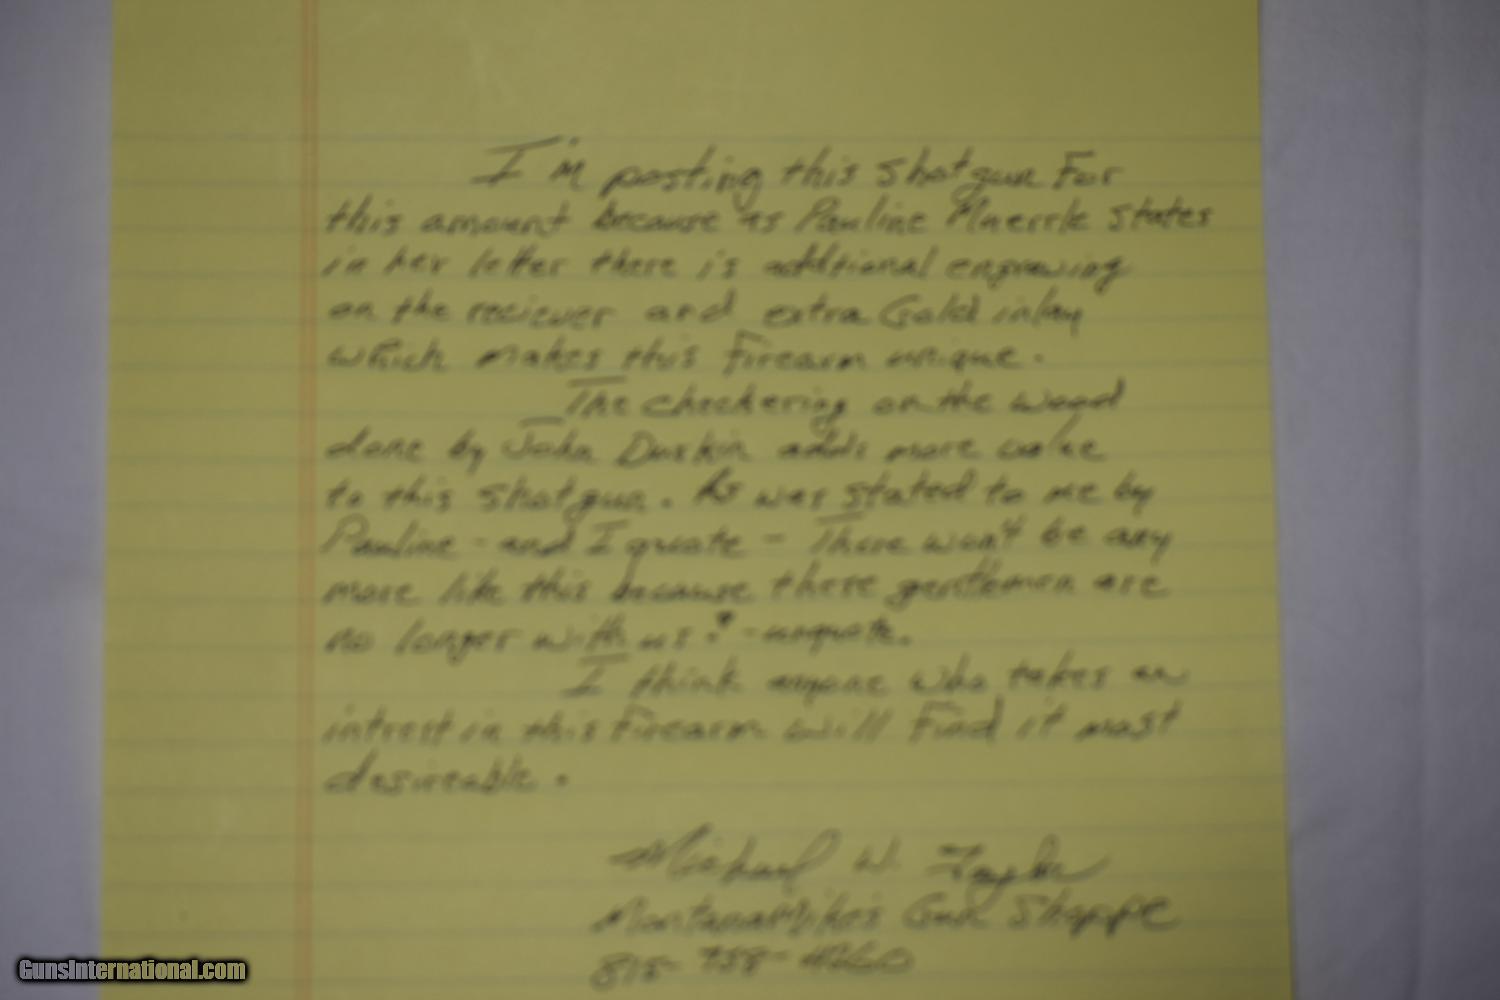 I'm posting this shotgun For
this amount because as Pauline states
in her letter there is additional engraving
on the reciever and extra Gold inlay
which makes this Firearm unique.
The checkering on the wood
done by John adds more value
to this shotgun. As was stated to me by
Pauline - and I quote - There won't be any
more like this because these gentlemen are
no longer with us." - unquote.
I think anyone who takes an
intrest in this Firearm will Find it most
desireable.
Michael W. Taylor
MontanaMike's Gun Shoppe
815-
GunsInternational.com